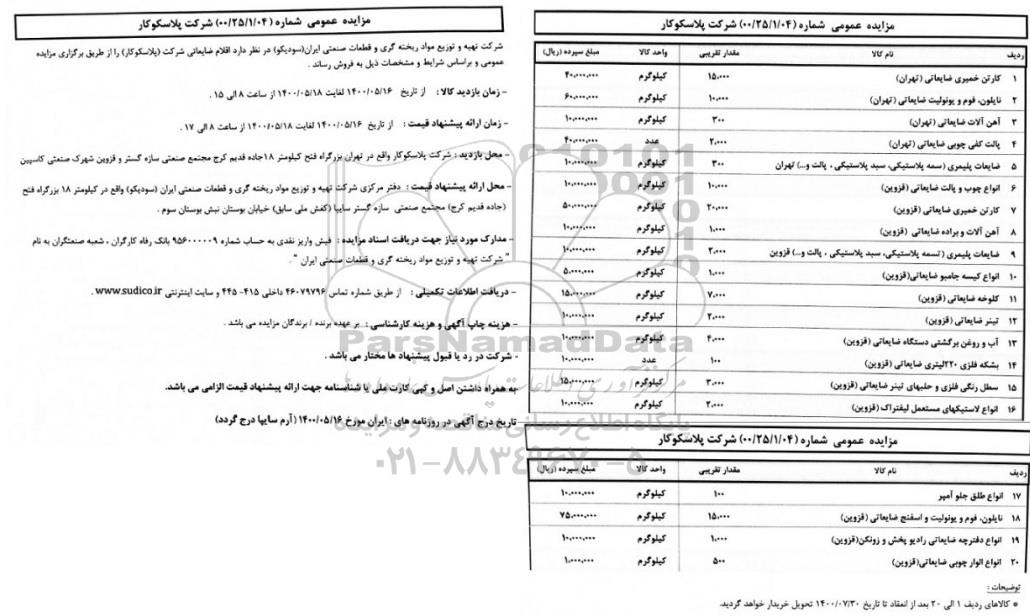 مزایده عمومی شماره (۰۰/۲۵/۱/۰۴) شرکت پلاسکوکار
ردیف نام کالا مقدار تقریبی واحد کالا مبلغ سپرده (ریال)
۱ کارتن خمیری ضایعاتی (تهران) ۱۵.۰۰۰ کیلوگرم ۴۰.۰۰۰.۰۰۰
۲ نایلون، فوم و یونولیت ضایعاتی (تهران) ۱۰.۰۰۰ کیلوگرم ۶۰.۰۰۰.۰۰۰
۳ آهن آلات ضایعاتی (تهران) ۳۰۰ کیلوگرم ۱۰.۰۰۰.۰۰۰
۴ پالت کفی چوبی ضایعاتی (تهران) ۲.۰۰۰ عدد ۴۰.۰۰۰.۰۰۰
۵ ضایعات پلیمری (سمه پلاستیکی، سبد پلاستیکی ، پالت و...) تهران ۳۰۰ کیلوگرم ۱۰.۰۰۰.۰۰۰
۶ انواع چوب و پالت ضایعاتی (قزوین) ۱۰.۰۰۰ کیلوگرم ۱۰.۰۰۰.۰۰۰
۷ کارتن خمیری ضایعاتی (قزوین) ۲۰.۰۰۰ کیلوگرم ۵۰.۰۰۰.۰۰۰
۸ آهن آلات و براده ضایعاتی (قزوین) ۱.۰۰۰ کیلوگرم ۱۰.۰۰۰.۰۰۰
۹ ضایعات پلیمری (تسمه پلاستیکی، سبد پلاستیکی ، پالت و...) قزوین ۲.۰۰۰ کیلوگرم ۱۰.۰۰۰.۰۰۰
۱۰ انواع کیسه جامبو ضایعاتی(قزوین) ۱.۰۰۰ کیلوگرم ۵.۰۰۰.۰۰۰
۱۱ کلوخه ضایعاتی (قزوین) ۷.۰۰۰ کیلوگرم ۱۵.۰۰۰.۰۰۰
۱۲ تینر ضایعاتی (قزوین) ۲.۰۰۰ کیلوگرم ۱۰.۰۰۰.۰۰۰
۱۳ آب و روغن برگشتی دستگاه ضایعاتی (قزوین) ۴.۰۰۰ کیلوگرم ۱۰.۰۰۰.۰۰۰
۱۴ بشکه فلزی ۲۲۰لیتری ضایعاتی (قزوین) ۱۰۰ عدد ۱۰.۰۰۰.۰۰۰
۱۵ سطل رنگی فلزی و حلبهای تینر ضایعاتی (قزوین) ۳.۰۰۰ کیلوگرم ۱۵.۰۰۰.۰۰۰
۱۶ انواع لاستیکهای مستعمل لیفتراک (قزوین) ۲.۰۰۰ کیلوگرم ۱۰.۰۰۰.۰۰۰
مزایده عمومی شماره (۰۰/۲۵/۱/۰۴) شرکت پلاسکوکار
ردیف نام کالا مقدار تقریبی واحد کالا مبلغ سپرده (ریال)
۱۷ انواع طلق جلو آمپر ۱۰۰ کیلوگرم ۱۰.۰۰۰.۰۰۰
۱۸ نایلون، فوم و یونولیت و اسفنج ضایعاتی (قزوین) ۱۵.۰۰۰ کیلوگرم ۷۵.۰۰۰.۰۰۰
۱۹ انواع دفترچه ضایعاتی رادیو پخش و زونکن(قزوین) ۱.۰۰۰ کیلوگرم ۱۰.۰۰۰.۰۰۰
۲۰ انواع الوار چوبی ضایعاتی(قزوین) ۵۰۰ کیلوگرم ۱.۰۰۰.۰۰۰
توضیحات :
* کالاهای ردیف ۱ الی ۲۰ بعد از انعقاد تا تاریخ ۱۴۰۰/۰۷/۳۰ تحویل خریدار خواهد گردید.
مزایده عمومی شماره (۰۰/۲۵/۱/۰۴) شرکت پلاسکوکار
شرکت تهیه و توزیع مواد ریخته گری و قطعات صنعتی ایران(سودیکو) در نظر دارد اقلام ضایعاتی شرکت (پلاسکوکار) را از طریق برگزاری مزایده
عمومی و براساس شرایط و مشخصات ذیل به فروش رساند .
- زمان بازدید کالا : از تاریخ ۱۴۰۰/۰۵/۱۶ لغایت ۱۴۰۰/۰۵/۱۸ از ساعت ۸ الی ۱۵ .
- زمان ارائه پیشنهاد قیمت : از تاریخ ۱۴۰۰/۰۵/۱۶ لغایت ۱۴۰۰/۰۵/۱۸ از ساعت ۸ الی ۱۷ .
- محل بازدید : شرکت پلاسکوکار واقع در تهران بزرگراه فتح کیلومتر ۱۸جاده قدیم کرج مجتمع صنعتی سازه گستر و قزوین شهرک صنعتی کاسپین
- محل ارائه پیشنهاد قیمت : دفتر مرکزی شرکت تهیه و توزیع مواد ریخته گری و قطعات صنعتی ایران (سودیکو) واقع در کیلومتر ۱۸ بزرگراه فتح
(جاده قدیم کرج) مجتمع صنعتی سازه گستر سایپا (کفش ملی سابق) خیابان بوستان نبش بوستان سوم .
- مدارک مورد نیاز جهت دریافت اسناد مزایده : فیش واریز نقدی به حساب شماره ۹۵۶۰۰۰۰۰۹ بانک رفاه کارگران ، شعبه صنعتگران به نام
" شرکت تهیه و توزیع مواد ریخته گری و قطعات صنعتی ایران " .
- دریافت اطلاعات تکمیلی : از طریق شماره تماس ۴۶۰۷۹۷۹۶ داخلی ۴۱۵- ۴۴۵ و سایت اینترنتی www.sudico.ir .
- هزینه چاپ آگهی و هزینه کارشناسی : بر عهده برنده / برندگان مزایده می باشد .
- شرکت در رد یا قبول پیشنهاد ها مختار می باشد .
به همراه داشتن اصل و کپی کارت ملی یا شناسنامه جهت ارائه پیشنهاد قیمت الزامی می باشد.
- تاریخ درج آگهی در روزنامه های : ایران مورخ ۱۴۰۰/۰۵/۱۶ (آرم سایپا درج گردد)
ParsNamadData
پایگاه اطلاع رسانی مناقصه و مزایده
۰۲۱-۸۸۳۴۹۶۷۰-۵